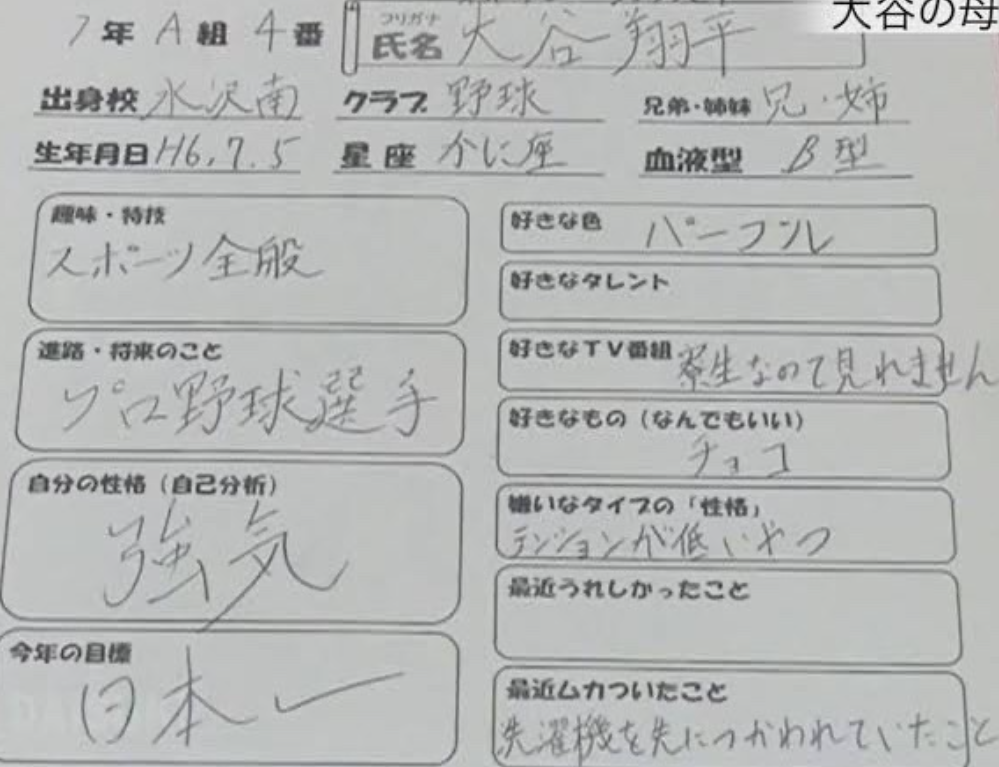 大谷の母
1年 A組 4番
フリガナ
氏名 大谷翔平
出身校 水沢南 クラブ 野球 兄弟・姉妹 兄・姉
生年月日 H6.7.5 星座 かに座 血液型 B型
趣味・特技
スポーツ全般
進路・将来のこと
プロ野球選手
自分の性格(自己分析)
強気
今年の目標
日本一
好きな色 パープル
好きなタレント
好きなTV番組 寮生なので見れません
好きなもの(なんでもいい)
チョコ
嫌いなタイプの「性格」
テンションが低いやつ
最近うれしかったこと
最近ムカついたこと
洗濯機を先につかわれていたこと